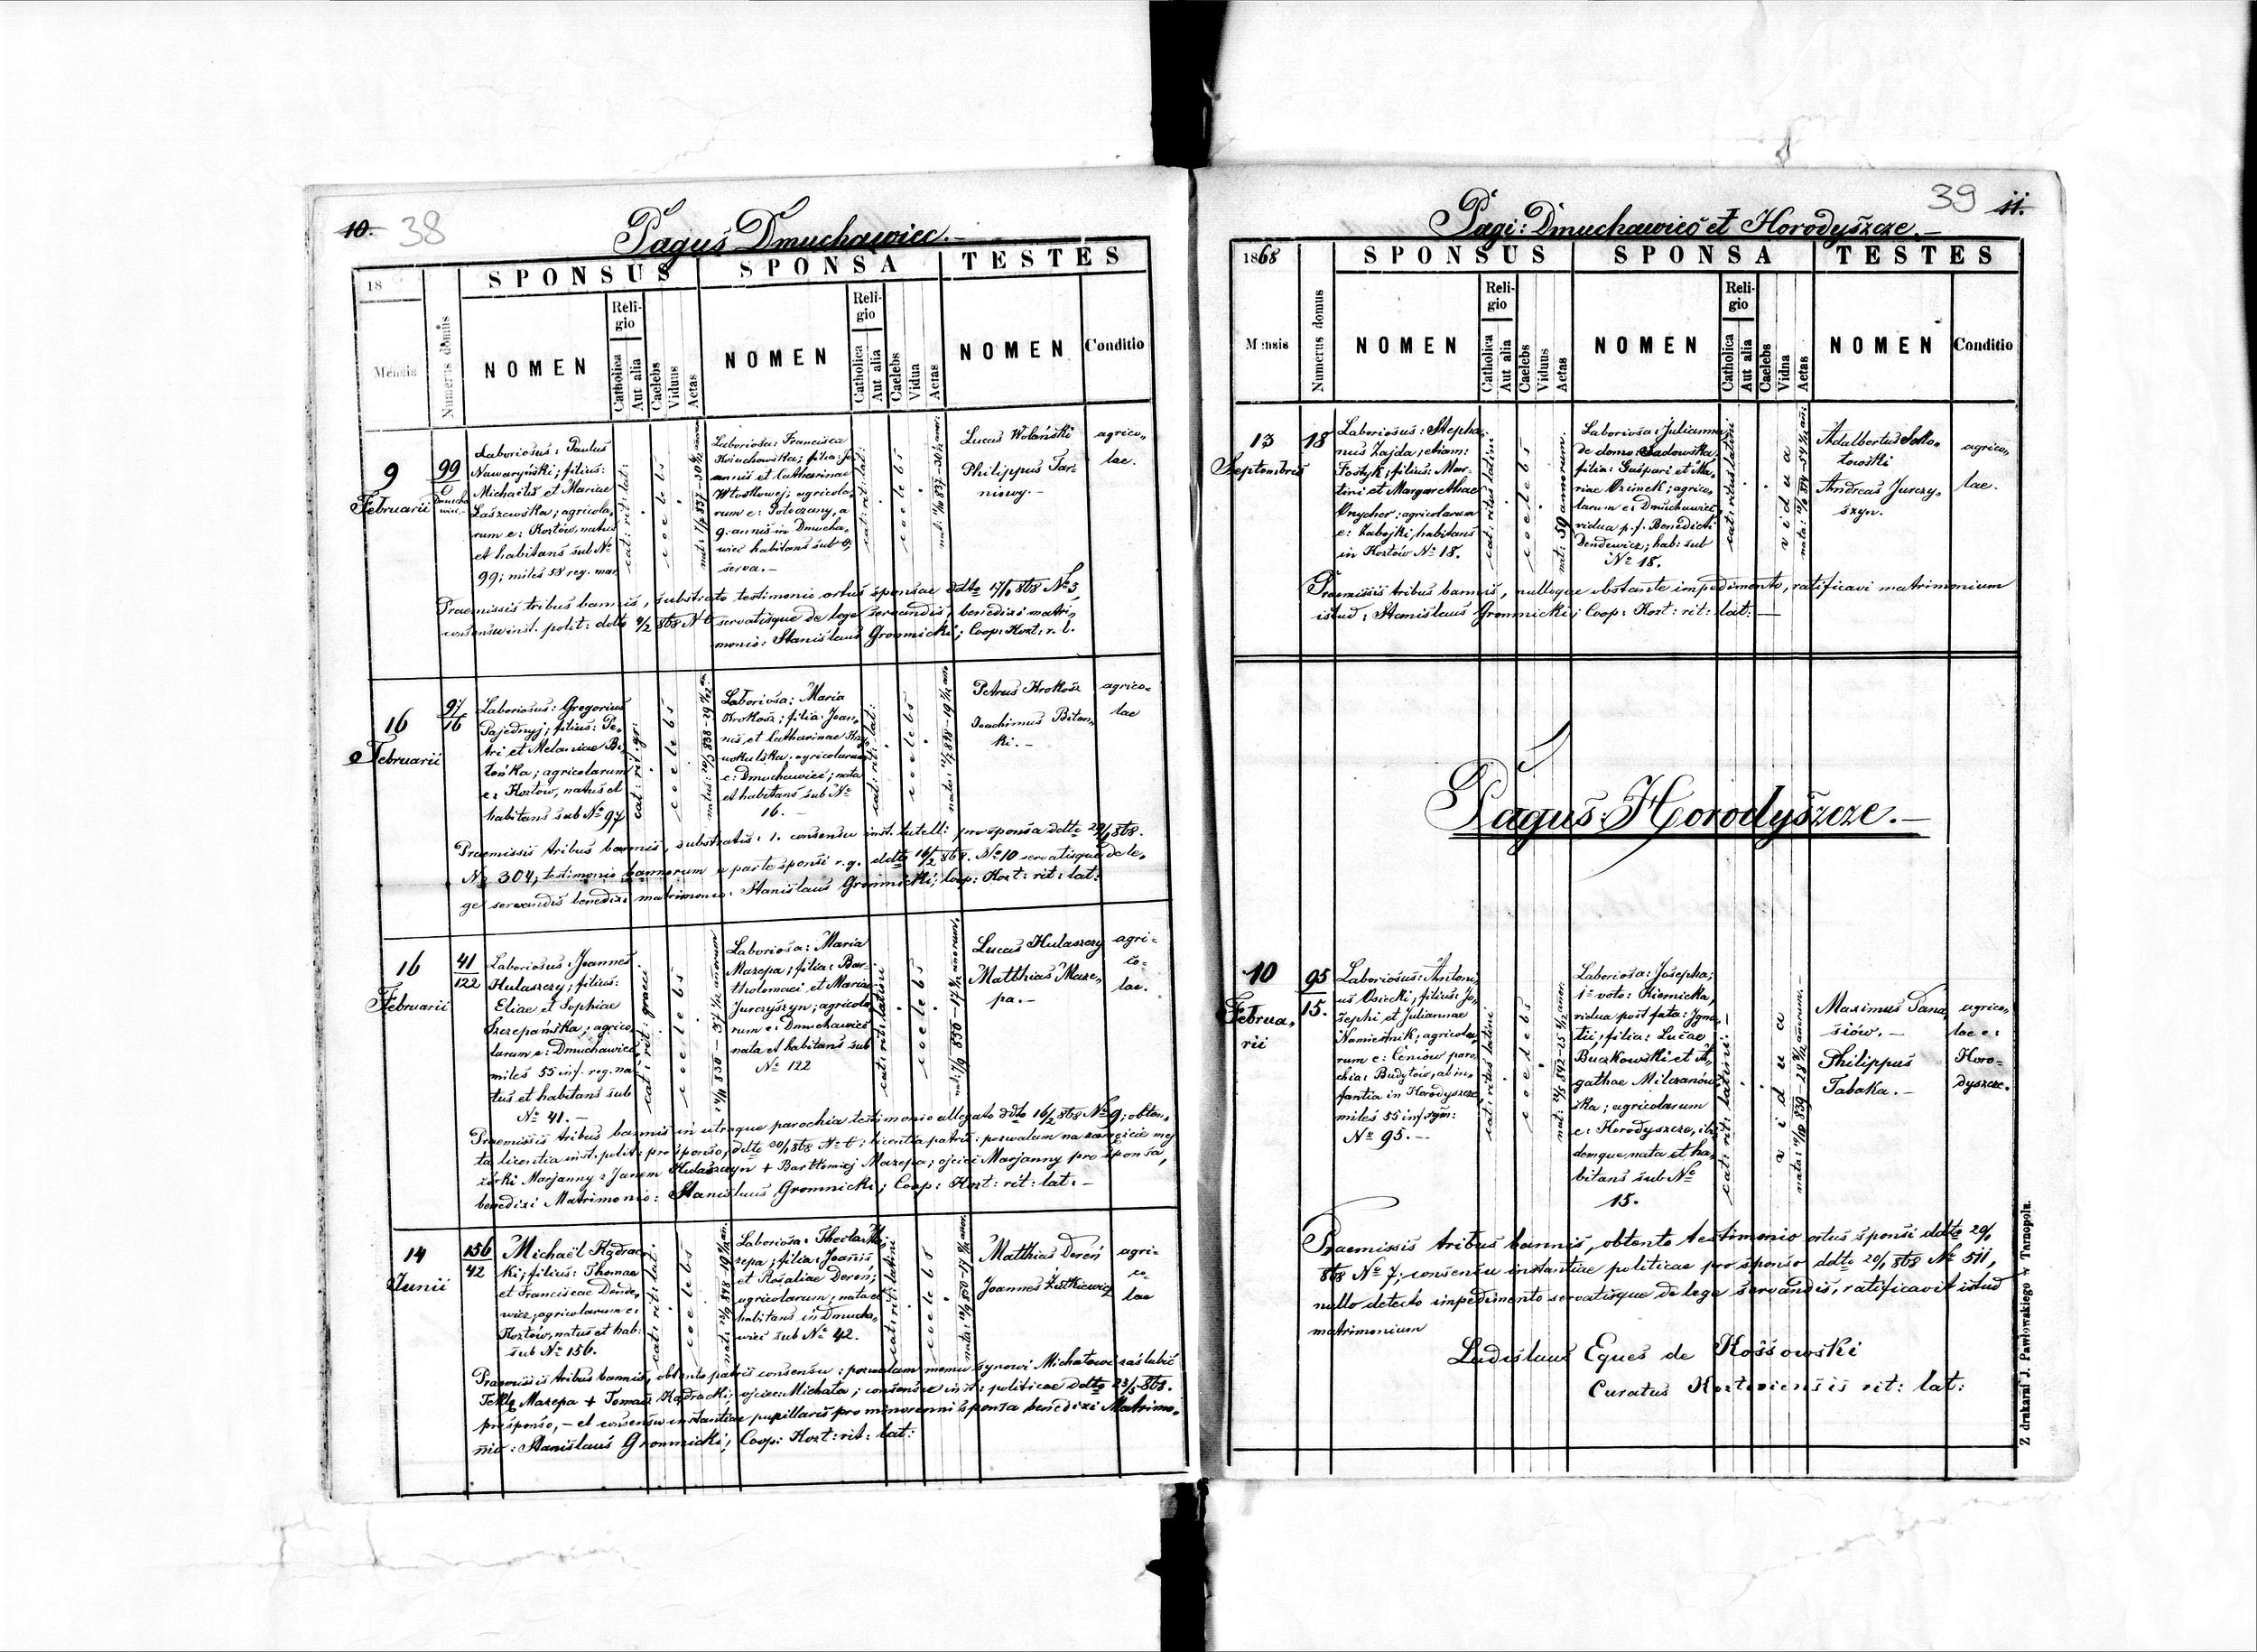 10. 38
Pagus Dmuchawiec.—
18
SPONSUS
SPONSA
TESTES
Mensis
Numerus domus
NOMEN
Religio
Catholica
Aut alia
Caelebs
Viduus
Aetas
NOMEN
Religio
Catholica
Aut alia
Caelebs
Vidua
Aetas
NOMEN
Conditio
9
Februarii
99
Laboriosus: Paulus
Nawaryński; filius:
Michaëlis et Mariae
Laszewska; agricola,
rum e: Kozłów, natus
et habitans sub No
99; miles 58 reg. mar
cat: rit: lat:
coelebs
Laboriosa: Francisca
filia: Jo
annis et Catharinae
agricola,
rum e: Potoczany, a
9. annis in Dmucha,
wiec habitans sub
serva.—
cat: rit: lat:
coelebs
Lucas Wolański
Philippus Tar=
nowy.—
agrico,,
lae.
Praemissis tribus bannis, substrato testimonio ortus sponsae ddto 17/1 868 No 3,
consensu inst. polit: ddto 4/2 868 N 6 servatisque de lege servandis, benedixi matri,
monio: Stanislaus Gromnicki; Coop: Kozt: r. l.
16
Februarii
97
16
Laboriosus: Gregorius
Pajednyj; filius: Pe,
tri et Melaniae Bi,
tońka; agricolarum
e: Kozłów, natus et
habitans sub No 97
cat: rit: gr:
coelebs
Laboriosa: Maria
Krokosz; filia: Joan,
nis et Catharinae
agricolarum
e: Dmuchawiec; nata
et habitans sub No
16.—
cat: rit: lat:
coelebs
Petrus Krokosz
Joachimus Biton,
ki.—
agrico=
lae
Praemissis tribus bannis, substratis: 1. consensu inst. tutell: pro sponsa ddto 29/1 868.
No 304; testimonio bannorum e parte sponsi r. g. ddto 16/2 868. No 10 servatisque de le,
ge servandis benedixi matrimonio: Stanislaus Gromnicki; Coop: Kozt: rit: lat:
16
Februarii
41
122
Laboriosus: Joannes
Hulaszczy; filius:
Eliae et Sophiae
Szczepańska; agrico,
larum e: Dmuchawiec,
miles 55 inf. reg. na
tus et habitans sub
No 41.—
cat: rit: graeci
coelebs
Laboriosa: Maria
Mazepa; filia: Bar=
tholomaei et Mariae
Jurczyszyn; agricola
rum e: Dmuchawiec
nata et habitans sub
No 122
cat: ritus latini
coelebs
Lucas Hulaszczy
Matthias Maze,
pa.—
agri=
co=
lae.
Praemissis tribus bannis in utraque parochia testimonio allegato ddto 16/2 868 No 9; obten,
ta licentia inst: polit: pro sponso, ddto 30/1 868 No 6; licentia patris: pozwalam na zamęście mej
córki Marjanny z Janem Hulaszczyn + Bartłomiej Mazepa; ojciec Marjanny pro sponsa,
benedixi Matrimonio: Stanislaus Gromnicki; Coop: Kozt: rit: lat:—
14
Junii
156
42
Michaël Kądrac
ki; filius: Thomae
et Franciscae Dende,
wicz, agricolarum e:
Kozłów, natus et hab:
sub No 156.
cat: rit: lat:
coelebs
Laboriosa: Thecla Ma,
zepa; filia: Joannis
et Rosaliae Dereń;
agricolarum; nata et
habitans in Dmucha,
wiec sub No 42.
cat: rit: latini
coelebs
Matthias Dereń
Joannes Żółtkiewicz
agri=
co=
lae
Praemissis tribus bannis, obtento patris consensu: pozwalam memu synowi Michałowi zaślubić
Teklę Mazepa + Tomasz Kądracki; ojciec Michała; consensu inst: politicae ddto 23/5 868.
pro sponso,— et consensu instantiae pupillaris pro minorenni sponsa benedixi Matrimo,
nio: Stanislaus Gromnicki; Coop: Kozt: rit: lat:
39 11.
Pagi: Dmuchawiec et Horodyszcze.—
1868
SPONSUS
SPONSA
TESTES
Mensis
Numerus domus
NOMEN
Religio
Catholica
Aut alia
Caelebs
Viduus
Aetas
NOMEN
Religio
Catholica
Aut alia
Caelebs
Vidua
Aetas
NOMEN
Conditio
13
Septembris
18
Laboriosus: Stepha,
nus Zajda, etiam:
Fostyk; filius: Mar=
tini et Margarethae
agricolarum
e: Zabojki; habitans
in Kozłów No 18.
cat: ritus latini
coelebs
nat: 59 annorum.
Laboriosa: Julianna
de domo: Sadowska
filia: Gaspari et Ma,
riae Osinek; agrico,
larum e: Dmuchawiec,
vidua p. f. Benedicti
Dendewicz; hab: sub
No 18.
cat: ritus latini
vidua
Adalbertus Soko=
towski
Andreas Jurczy,
szyn.
agrico,
lae.
Praemissis tribus bannis, nulloque obstante impedimento, ratificavi matrimonium
istud: Stanislaus Gromnicki; Coop: Kozt: rit: lat:—
Pagus: Horodyszcze.—
10
Februa,
rii
95
15.
Laboriosus: Antoni,
us Osiecki, filius: Jo,
sephi et Juliannae
Namiestnik; agricola,
rum e: Ceniów paro,
chia: Budyłów, ab in,
fantia in Horodyszcze
miles 55 inf.
No 95.—
cat: ritus latini
coelebs
Laboriosa: Josepha;
1o voto: Kiernicka,
vidua post fata: Igna=
tii; filia: Lucae
Buczkowski et A,
gathae Milczanow
ska; agricolarum
e: Horodyszcze, ibi,
demque nata et ha,
bitans sub No
15.
cat: rit: latini:—
vidua
Maximus Pana,
siów.—
Philippus
Tabaka.—
agrico,
lae e:
Horo=
dyszcze.
Praemissis tribus bannis, obtento testimonio ortus sponsi ddto 29/1
868 No 7; consensu instantiae politicae pro sponso ddto 20/1 868 No 511,
nullo detecto impedimento servatisque de lege servandis, ratificavit istud
matrimonium
Ladislaus Eques de Kossowski
Curatus Kozloviensis rit: lat:
Z drukarni J. Pawłowskiego w Tarnopolu.